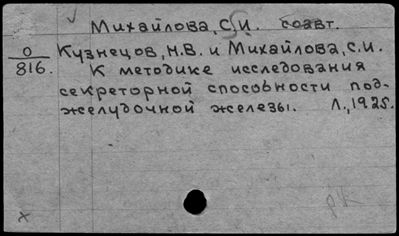 Михайлова, С.И. соавт.
О
816.
Кузнецов, Н.В. и Михайлова, С.И.
К методике исследования
секреторной способности под-
желудочной железы. Л., 1925.
х
рк